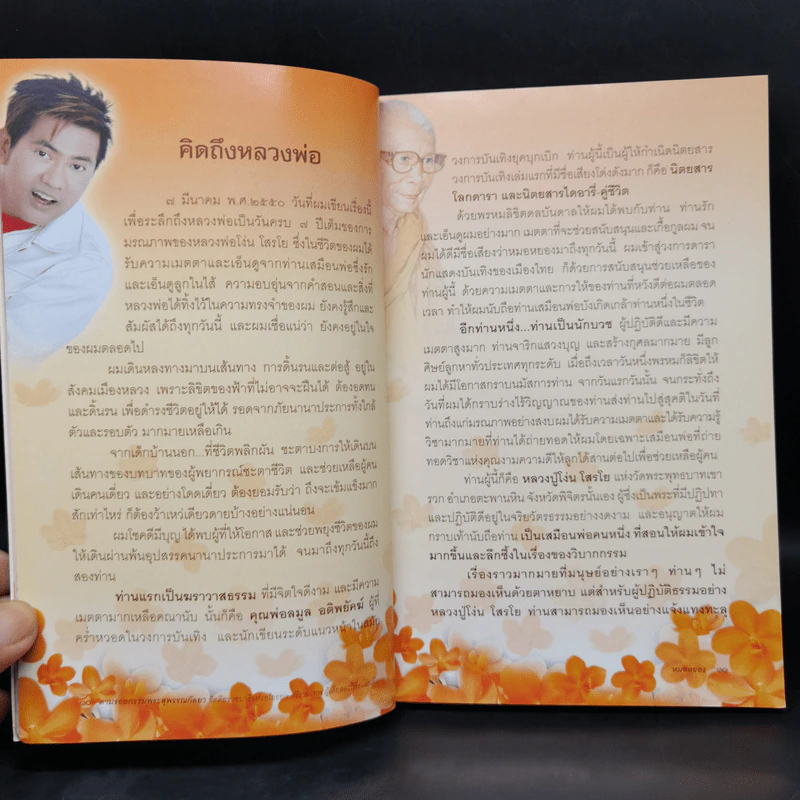 คิดถึงหลวงพ่อ
๘ มีนาคม พ.ศ.๒๕๕๐ วันที่ผมเขียนเรื่องนี้
เพื่อระลึกถึงหลวงพ่อเป็นวันครบ ๗ ปีเต็มของการ
มรณภาพของหลวงพ่อโง่น โสรโย ซึ่งในชีวิตของผมได้
รับความเมตตาและเอ็นดูจากท่านเสมือนพ่อซึ่งรัก
และเอ็นดูลูกในไส้ ความอบอุ่นจากคำสอนและสิ่งที่
หลวงพ่อได้ทิ้งไว้ในความทรงจำของผม ยังคงรู้สึกและ
สัมผัสได้ถึงทุกวันนี้ และผมเชื่อแน่ว่า ยังคงอยู่ในใจ
ของผมตลอดไป
ผมเดินหลงทางมาบนเส้นทาง การดิ้นรนและต่อสู้ อยู่ใน
สังคมเมืองหลวง เพราะลิขิตของฟ้าที่ไม่อาจจะฝืนได้ ต้องอดทน
และดิ้นรน เพื่อดำรงชีวิตอยู่ให้ได้ รอดจากภัยนานาประการทั้งใกล้
ตัวและรอบตัว มากมายเหลือเกิน
จากเด็กบ้านนอก...ที่ชีวิตพลิกผัน ชะตาบงการให้เดินบน
เส้นทางของบทบาทของผู้พยากรณ์ชะตาชีวิต และช่วยเหลือผู้คน
เดินคนเดียว และอย่างโดดเดี่ยว ต้องยอมรับว่า ถึงจะเข้มแข็งมาก
สักเท่าไหร่ ก็ต้องว้าเหว่เดียวดายบ้างอย่างแน่นอน
ผมโชคดีมีบุญ ได้พบผู้ที่ให้โอกาส และช่วยพยุงชีวิตของผม
ให้เดินผ่านพ้นอุปสรรคนานาประการมาได้ จนมาถึงทุกวันนี้ถึง
สองท่าน
ท่านแรกเป็นฆราวาสธรรม ที่มีจิตใจดีงาม และมีความ
เมตตามากเหลือคณานับ นั้นก็คือ คุณพ่อลมูล อติพยัคฆ์ ผู้ที่
คร่ำหวอดในวงการบันเทิง และนักเขียนระดับแนวหน้าในสมัย
วงการบันเทิงยุคบุกเบิก ท่านผู้นี้เป็นผู้ให้กำเนิดนิตยสาร
วงการบันเทิงเล่มแรกที่มีชื่อเสียงโด่งดังมาก ก็คือ นิตยสาร
โลกดารา และนิตยสารไดอารี่-คู่ชีวิต
ด้วยพรหมลิขิตดลบันดาลให้ผมได้พบกับท่าน ท่านรัก
และเอ็นดูผมอย่างมาก เมตตาที่จะช่วยสนับสนุนและเกื้อกูลผม จน
ผมได้ดีมีชื่อเสียงว่าหมอหยองมาถึงทุกวันนี้ ผมเข้าสู่วงการดารา
นักแสดงบันเทิงของเมืองไทย ก็ด้วยการสนับสนุนช่วยเหลือของ
ท่านผู้นี้ ด้วยความเมตตาและการให้ของท่านที่หวังดีต่อผมตลอด
เวลา ทำให้ผมนับถือท่านเสมือนพ่อบังเกิดเกล้าท่านหนึ่งในชีวิต
อีกท่านหนึ่ง...ท่านเป็นนักบวช ผู้ปฏิบัติดีและมีความ
เมตตาสูงมาก ท่านจาริกแสวงบุญ และสร้างกุศลมากมาย มีลูก
ศิษย์ลูกหาทั่วประเทศทุกระดับ เมื่อถึงเวลาวันหนึ่งพรหมก็ลิขิตให้
ผมได้มีโอกาสกราบนมัสการท่าน จากวันแรกวันนั้น จนกระทั่งถึง
วันที่ผมได้กราบร่างไร้วิญญาณของท่านส่งท่านไปสู่สุคติในวันที่
ท่านถึงแก่มรณภาพอย่างสงบผมได้รับความเมตตาและได้รับความรู้
วิชามากมายที่ท่านได้ถ่ายทอดให้ผมโดยเฉพาะเสมือนพ่อที่ถ่าย
ทอดวิชาแห่งคุณงามความดีให้ลูกได้สานต่อไปเพื่อช่วยเหลือผู้คน
ท่านผู้นี้ก็คือ หลวงปู่โง่น โสรโย แห่งวัดพระพุทธบาทเขา
รวก อำเภอตะพานหิน จังหวัดพิจิตรนั่นเอง ผู้ซึ่งเป็นพระที่มีปฏิปทา
และปฏิบัติดีอยู่ในจริยวัตรธรรมอย่างงดงาม และอนุญาตให้ผม
กราบเท้านับถือท่าน เป็นเสมือนพ่อคนหนึ่ง ที่สอนให้ผมเข้าใจ
มากขึ้นและลึกซึ้งในเรื่องของวิบากกรรม
เรื่องราวมากมายที่มนุษย์อย่างเราๆ ท่านๆ ไม่
สามารถมองเห็นด้วยตาหยาบ แต่สำหรับผู้ปฏิบัติธรรมอย่าง
หลวงปู่โง่น โสรโย ท่านสามารถมองเห็นอย่างแจ้งแทงทะลุ
หมอหยอง